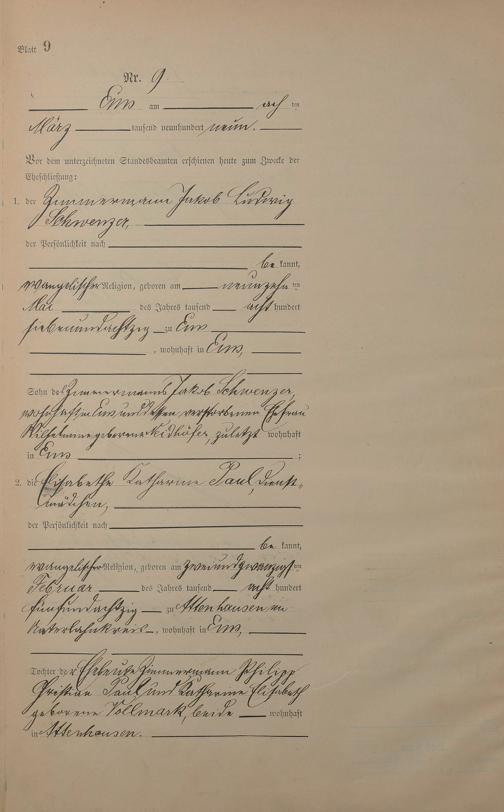 Blatt 9
Nr. 9
Ems am acht ten
März tausend neunhundert neun.
Vor dem unterzeichneten Standesbeamten erschienen heute zum Zwecke der
Eheschließung:
1. der Zimmermann Jakob Ludwig
Schwenzer,
der Persönlichkeit nach
be kannt,
evangelischer Religion, geboren am neunzehn ten
Mai des Jahres tausend acht hundert
siebenundachtzig zu Ems
, wohnhaft in Ems,
Sohn des Zimmermanns Jakob Schwenzer,
wohnhaft in Ems und dessen verstorbener Ehefrau
Wilhelmine geborener zuletzt wohnhaft
in Ems ;
2. die Elisabethe Katharine Paul, Dienst-
mädchen,
der Persönlichkeit nach
be kannt,
evangelischer Religion, geboren am zweiundzwanzigsten
Februar des Jahres tausend acht hundert
fünfundachtzig zu Attenhausen im
Unterlahnkreis, wohnhaft in Ems,
Tochter der Eheleute Zimmermann Philipp
Christian Paul und Katharine Elisabeth
geborene Vollmark, beide wohnhaft
in Attenhausen.